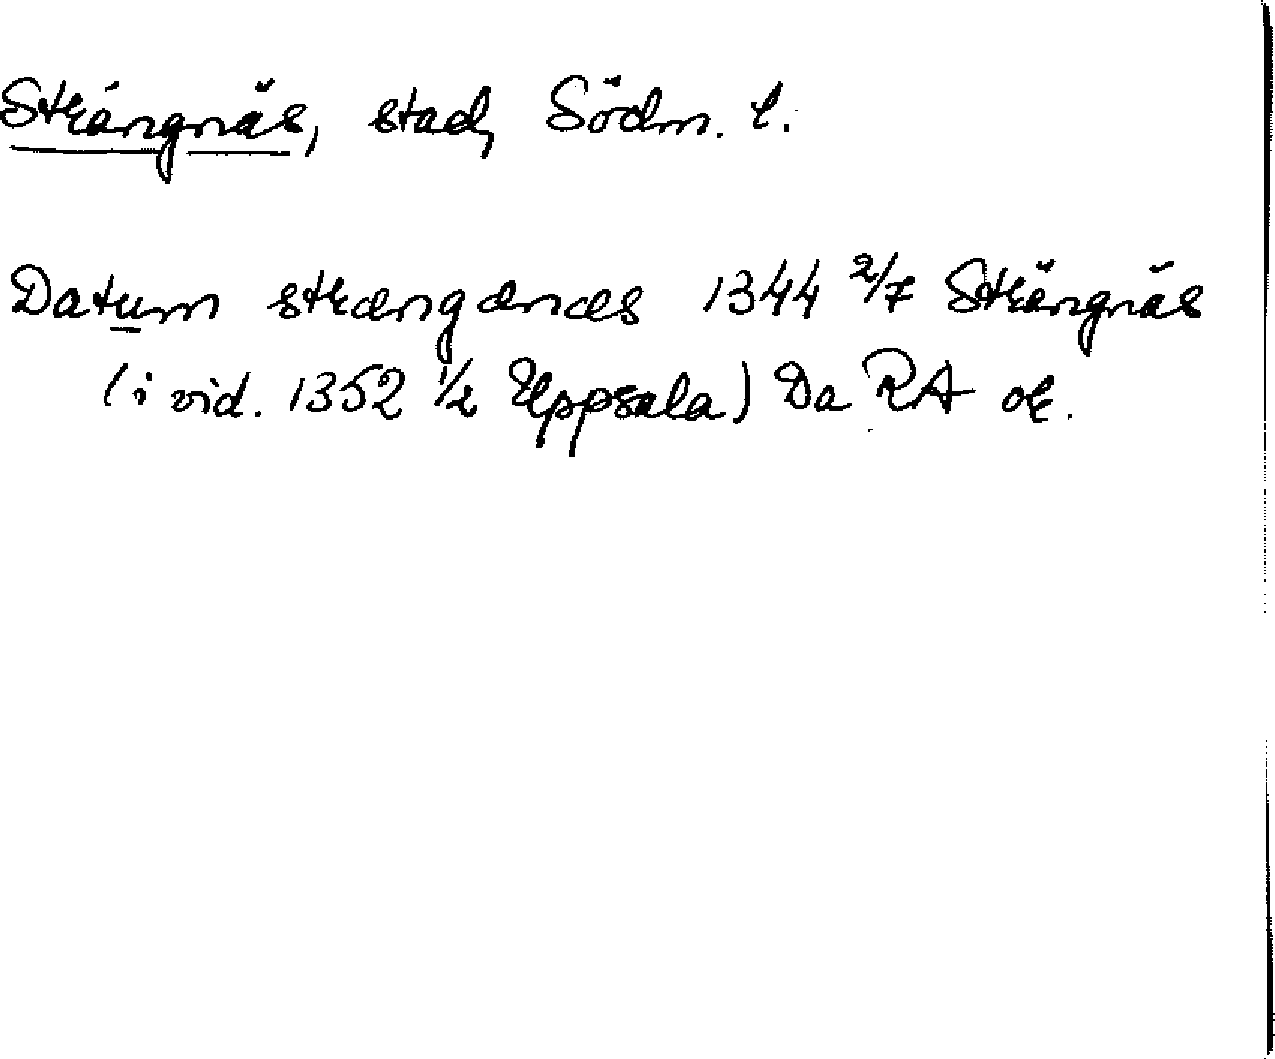 Strängnäs, stad, Södm. l.
Datum strængænæs 1344 2/7 Strängnäs
(i vid. 1352 1/2 Uppsala) Da RA or.